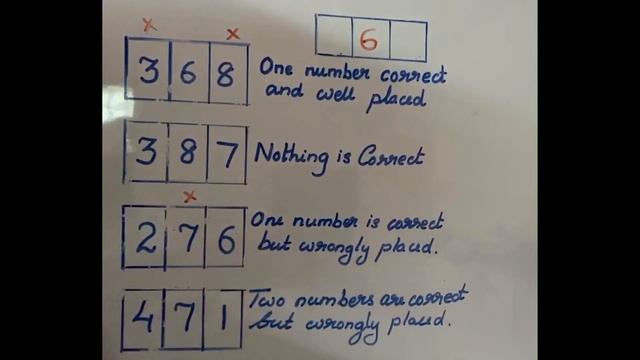 x x
6
3 6 8 One number correct
and well placed
3 8 7 Nothing is Correct
x
2 7 6 One number is correct
but wrongly placed.
4 7 1 Two numbers are correct
but wrongly placed.